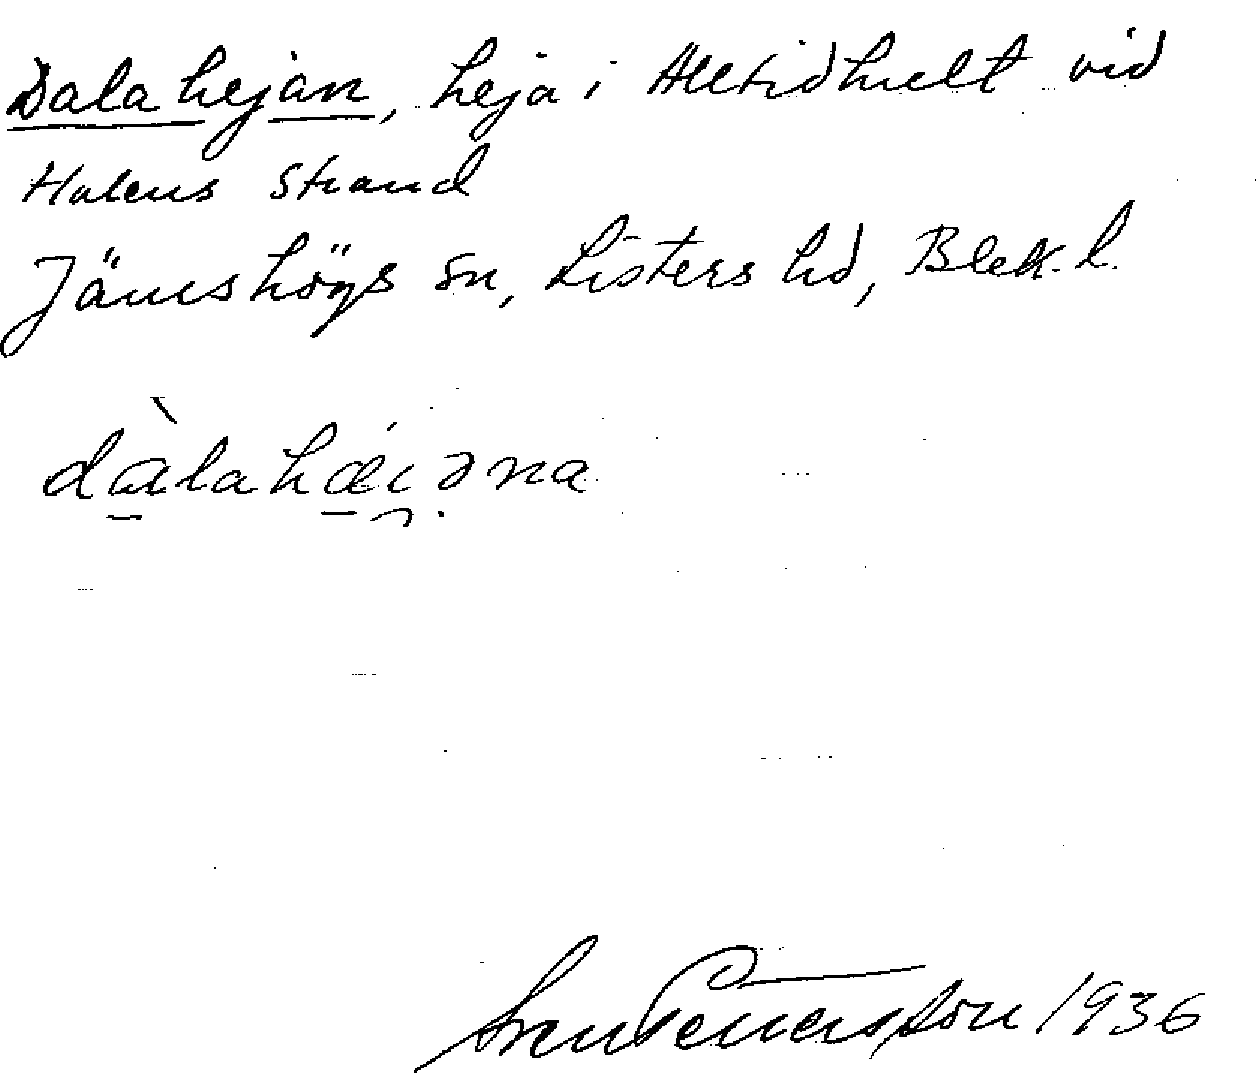 Dalahejan, heja i Alltidhult vid
Halens strand
Jämshögs sn, Listers hd, Blek. l.
dàlahǽi̯ə̣na
Sven Pettersson 1936